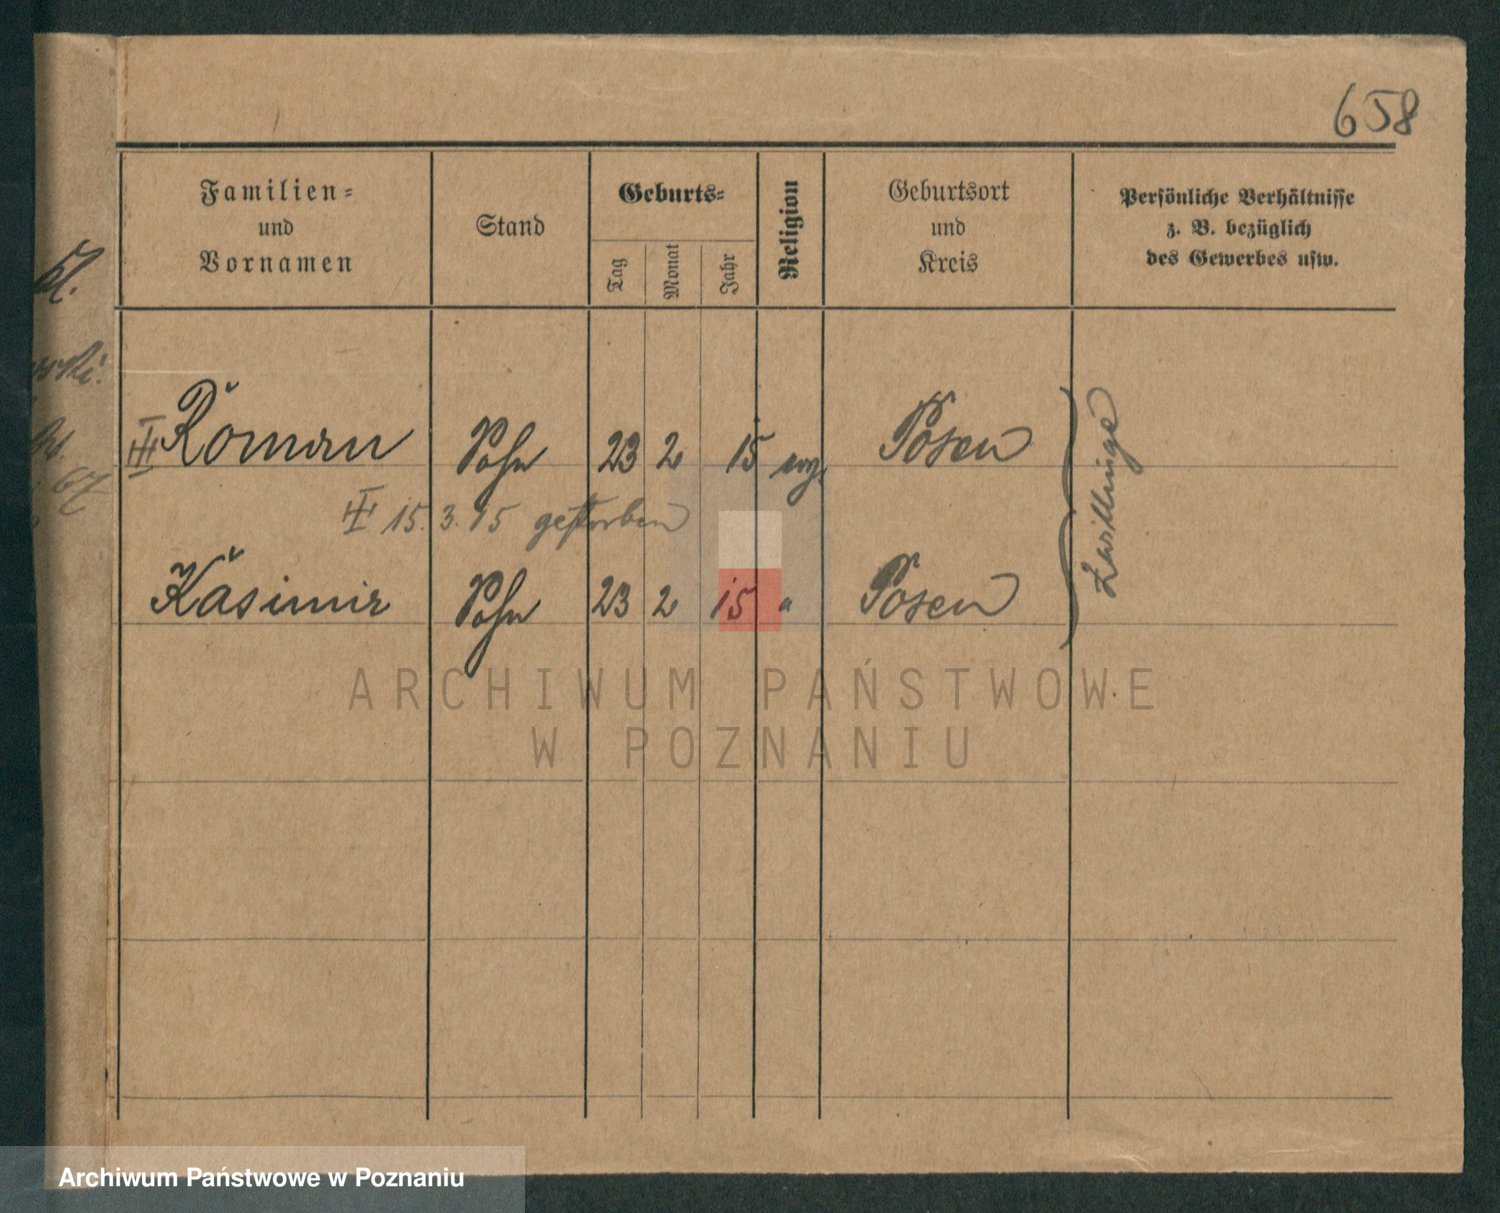 658
Familien=
und
Vornamen
Stand
Geburts=
Tag
Monat
Jahr
Religion
Geburtsort
und
Kreis
Persönliche Verhältnisse
z. B. bezüglich
des Gewerbes usw.
Roman Sohn 23 2 15 Posen
15. 3. 15 gestorben
Kasimir Sohn 23 2 15 " Posen
Zwillinge
ARCHIWUM PAŃSTWOWE
W POZNANIU
Archiwum Państwowe w Poznaniu